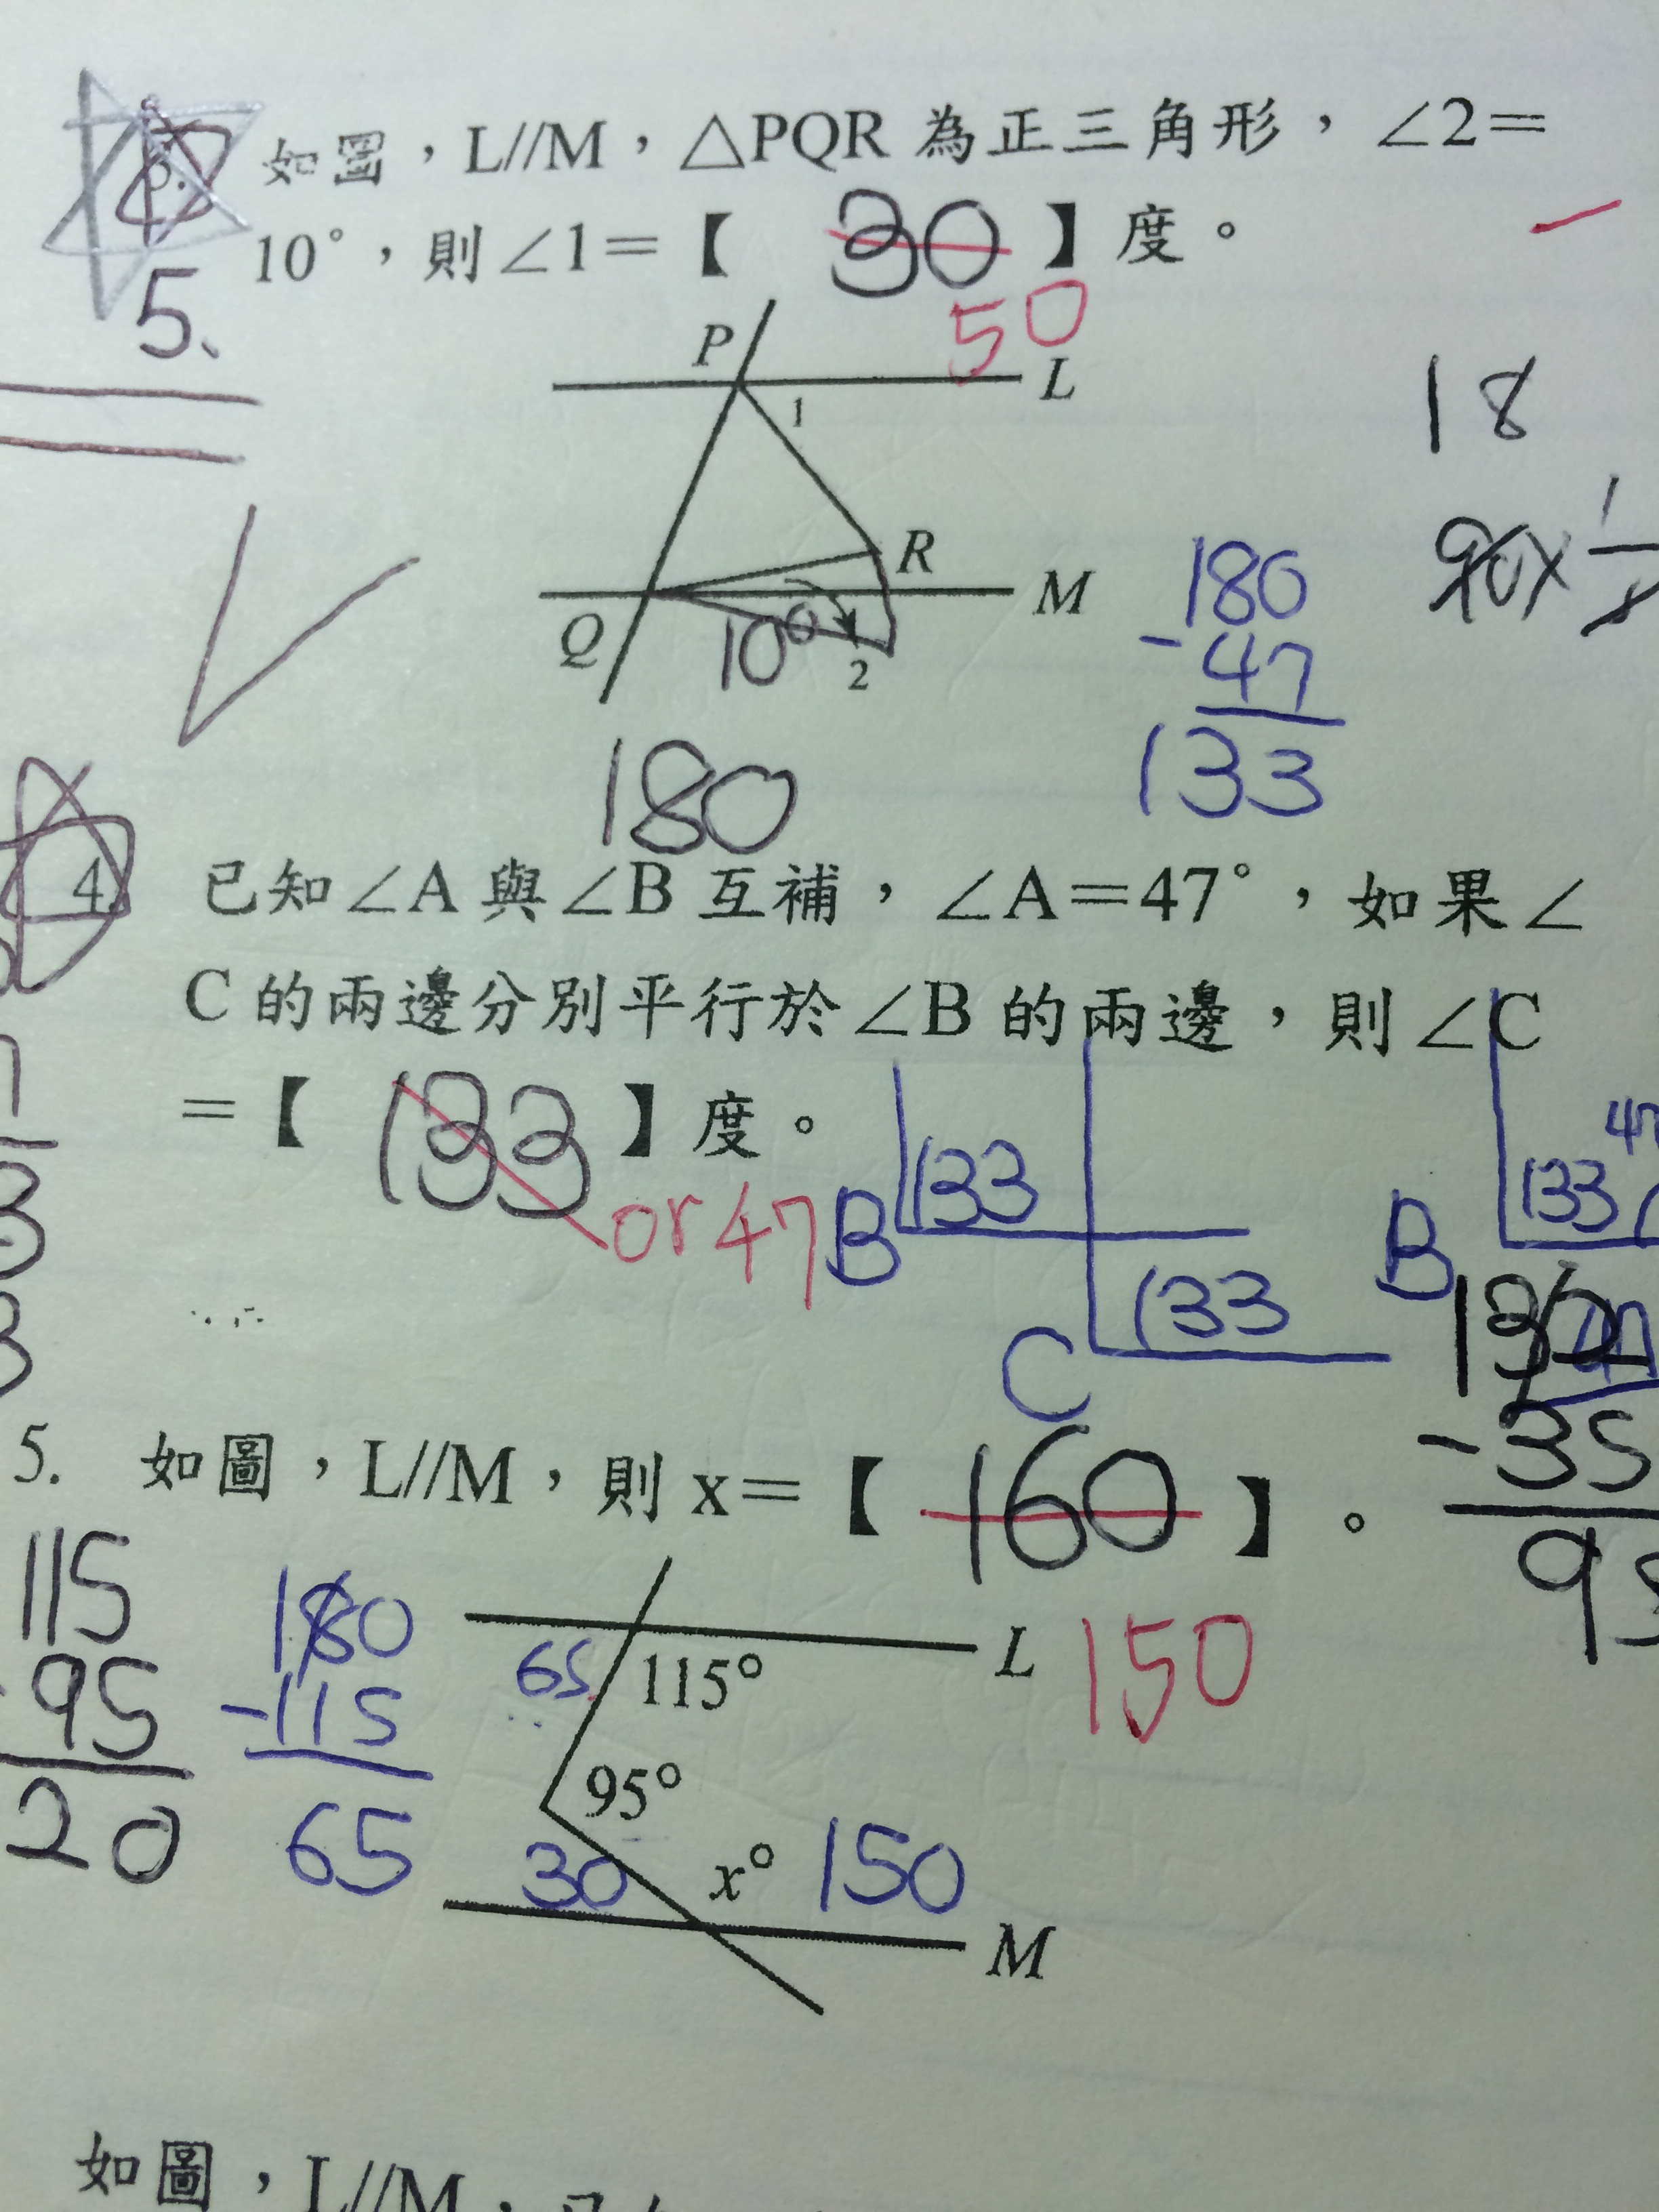 如圖，L//M，△PQR 為正三角形，∠2＝
10°，則∠1＝【 30 】度。
50
5、
P
L
1
R
M
Q
10°
2
18
90×
180
－47
133
180
4.
已知∠A 與∠B 互補，∠A＝47°，如果∠
C 的兩邊分別平行於∠B 的兩邊，則∠C
＝【 133 】度。
or 47
B
133
C
133
B
133
47
－35
5. 如圖，L//M，則 x＝【 160 】。
150
115
95
20
180
－115
65
65
115°
L
95°
30
x°
150
M
如圖，L//M，